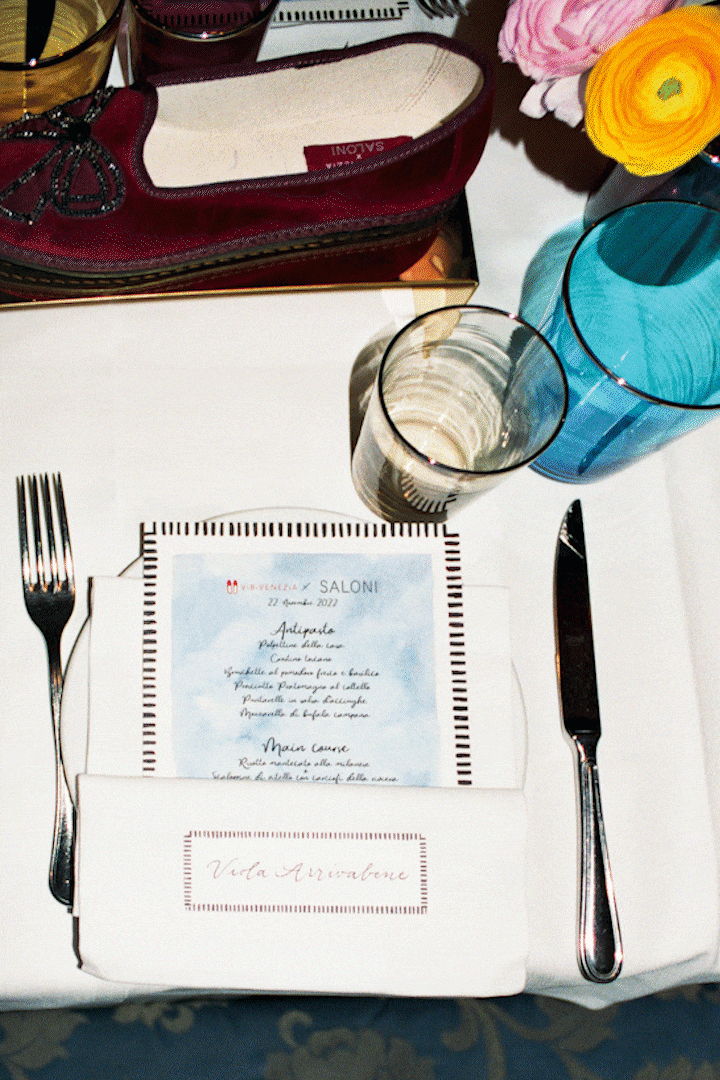 SALONI
ViBi VENEZIA X SALONI
22 November 2022
Antipasto
Polpettine della casa
Crostino toscano
Bruschette al pomodoro fresco e basilico
Prosciutto Pratomagno al coltello
Puntarelle in salsa d'acciughe
Mozzarella di bufala campana
Main course
Risotto mantecato alla milanese
Scaloppine di vitello con carciofi della nonna
Viola Arrivabene